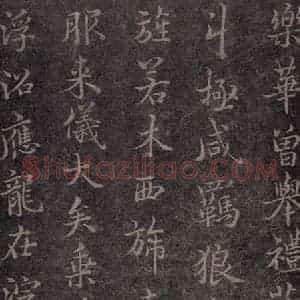 樂華曾舉禮
斗極咸羈狼
旌若木西旆
服来儀大矣乗
浮沼應龍在
Shufaziliao.com